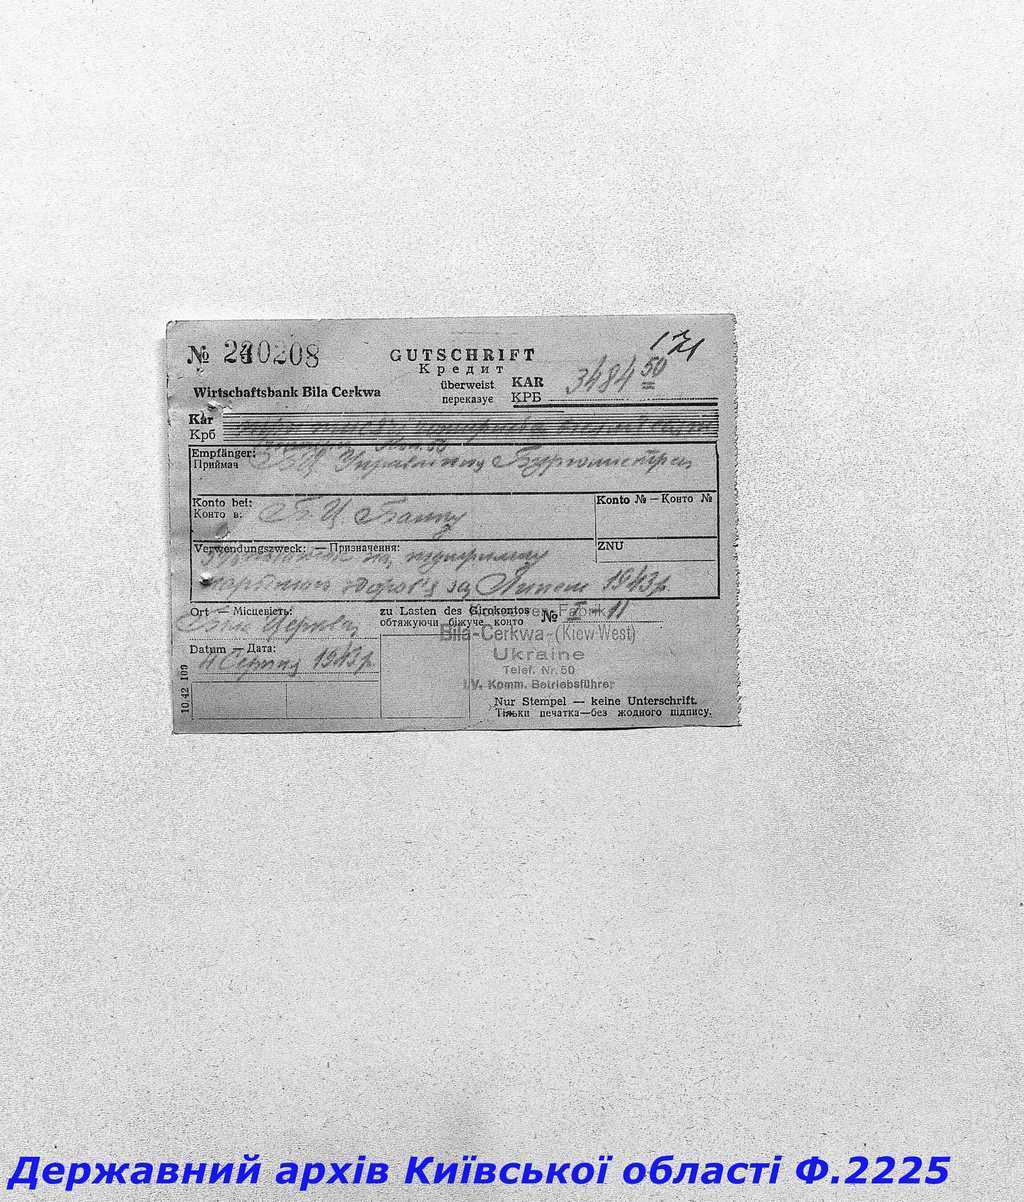 № 240208
GUTSCHRIFT
Кредит
Wirtschaftsbank Bila Cerkwa
überweist
переказує
KAR
КРБ
3484 50
Kar
Крб
Empfänger:
Приймач
БЦ Управлінню Бургомистра
Konto bei:
Конто в:
БЦ Банку
Konto № — Конто №
Verwendungszweck: — Призначення:
ZNU
на підтримку
здоров'я за Липень 1943 р.
Ort — Місцевість:
Біла Церква
zu Lasten des Girokontos
обтяжуючи біжуче конто
№ II 11
Datum — Дата:
11 Серпня 1943 р.
Fabrik
Bila-Cerkwa-(Kiew-West)
Ukraine
Telef. Nr. 50
I.V. Komm. Betriebsführer
Nur Stempel — keine Unterschrift.
Тільки печатка—без жодного підпису.
10.42 100
Державний архів Київської області Ф.2225